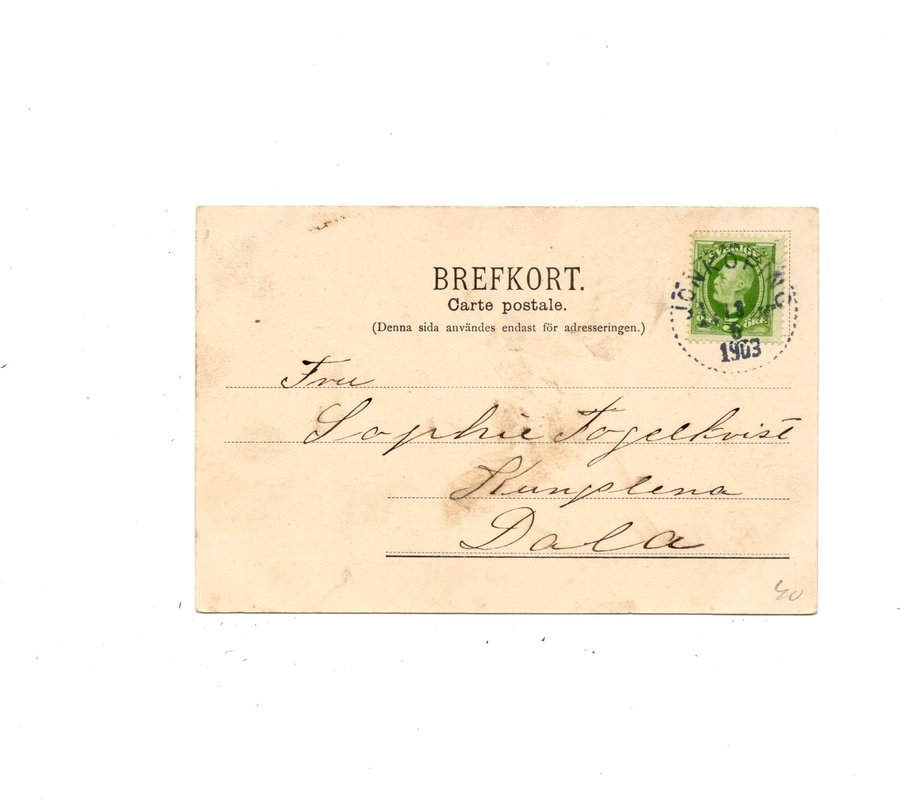 BREFKORT.
Carte postale.
(Denna sida användes endast för adresseringen.)
JÖNKÖPING
13
6
1903
ÖRE
Fru
Sophie Fogelkvist
Kungslena
Dala
40